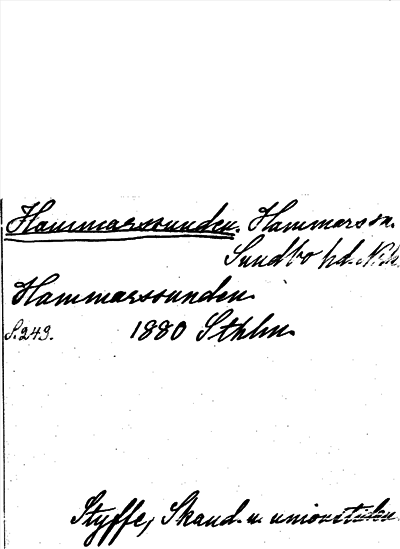 Hammarssunden. Hammars sn.
Sundbo hd. Nrk.
Hammarssunden.
S. 249. 1880 Sthlm.
Styffe, Skand. u. unionstiden